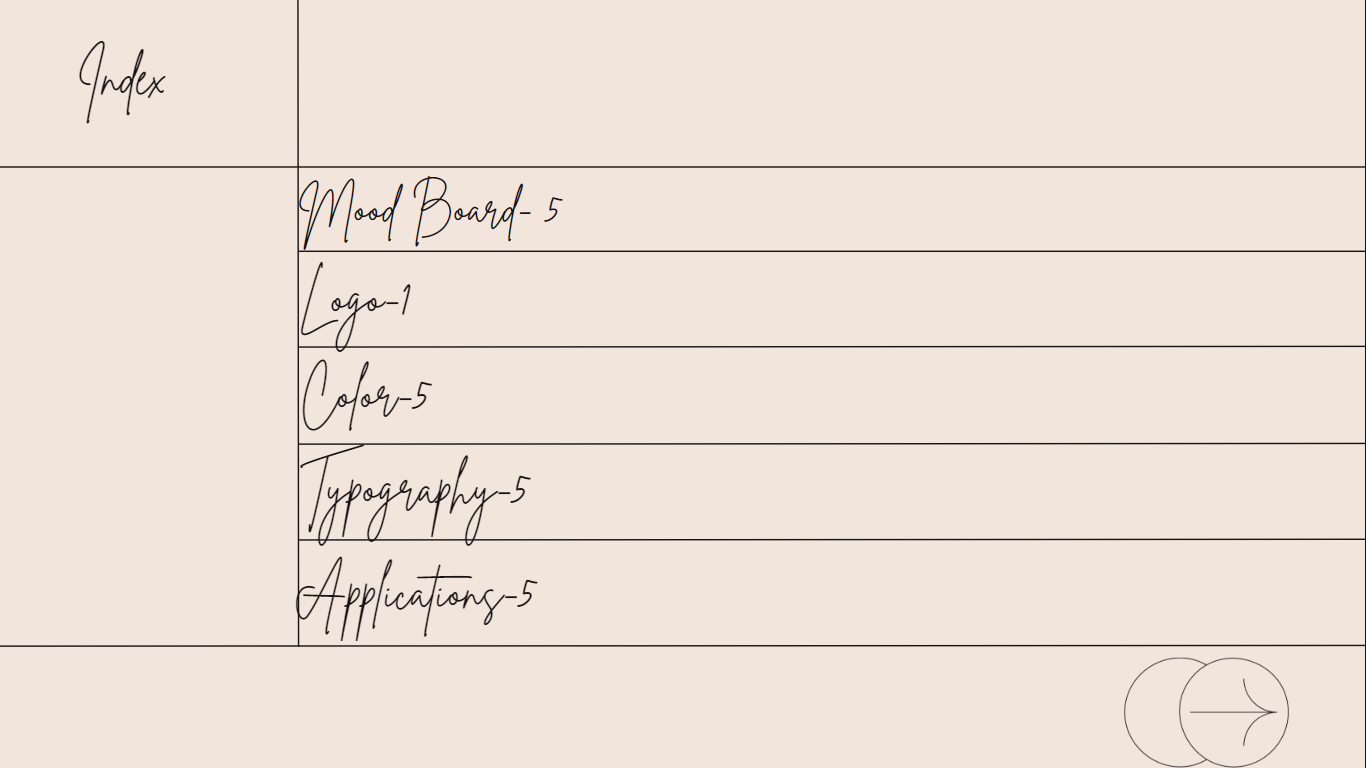 Index
Mood Board- 5
Logo-1
Color-5
Typography-5
Applications-5